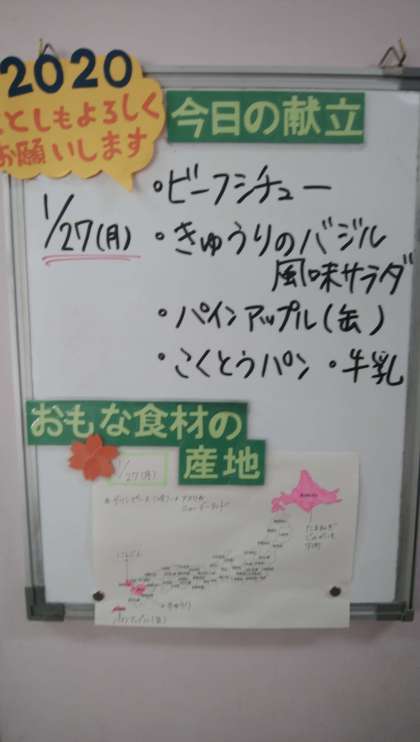 2020
ことしもよろしく
お願いします
今日の献立
1/27(月)
・ビーフシチュー
・きゅうりのバジル
風味サラダ
・パインアップル(缶)
・こくとうパン ・牛乳
おもな食材の
産地
1/27(月)
にんじん
たまねぎ
きゅうり